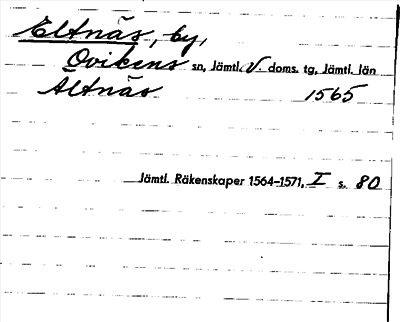 Eltnäs, by,
Ovikens sn, Jämtl. V. doms. tg, Jämtl. län
Ältnäs 1565
Jämtl. Räkenskaper 1564-1571, I s. 80